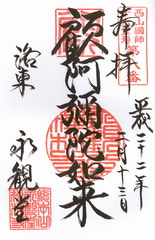 奉拝
西山國師
第 番
平成二十二年二月十三日
顧阿彌陀如来
洛東
永観堂